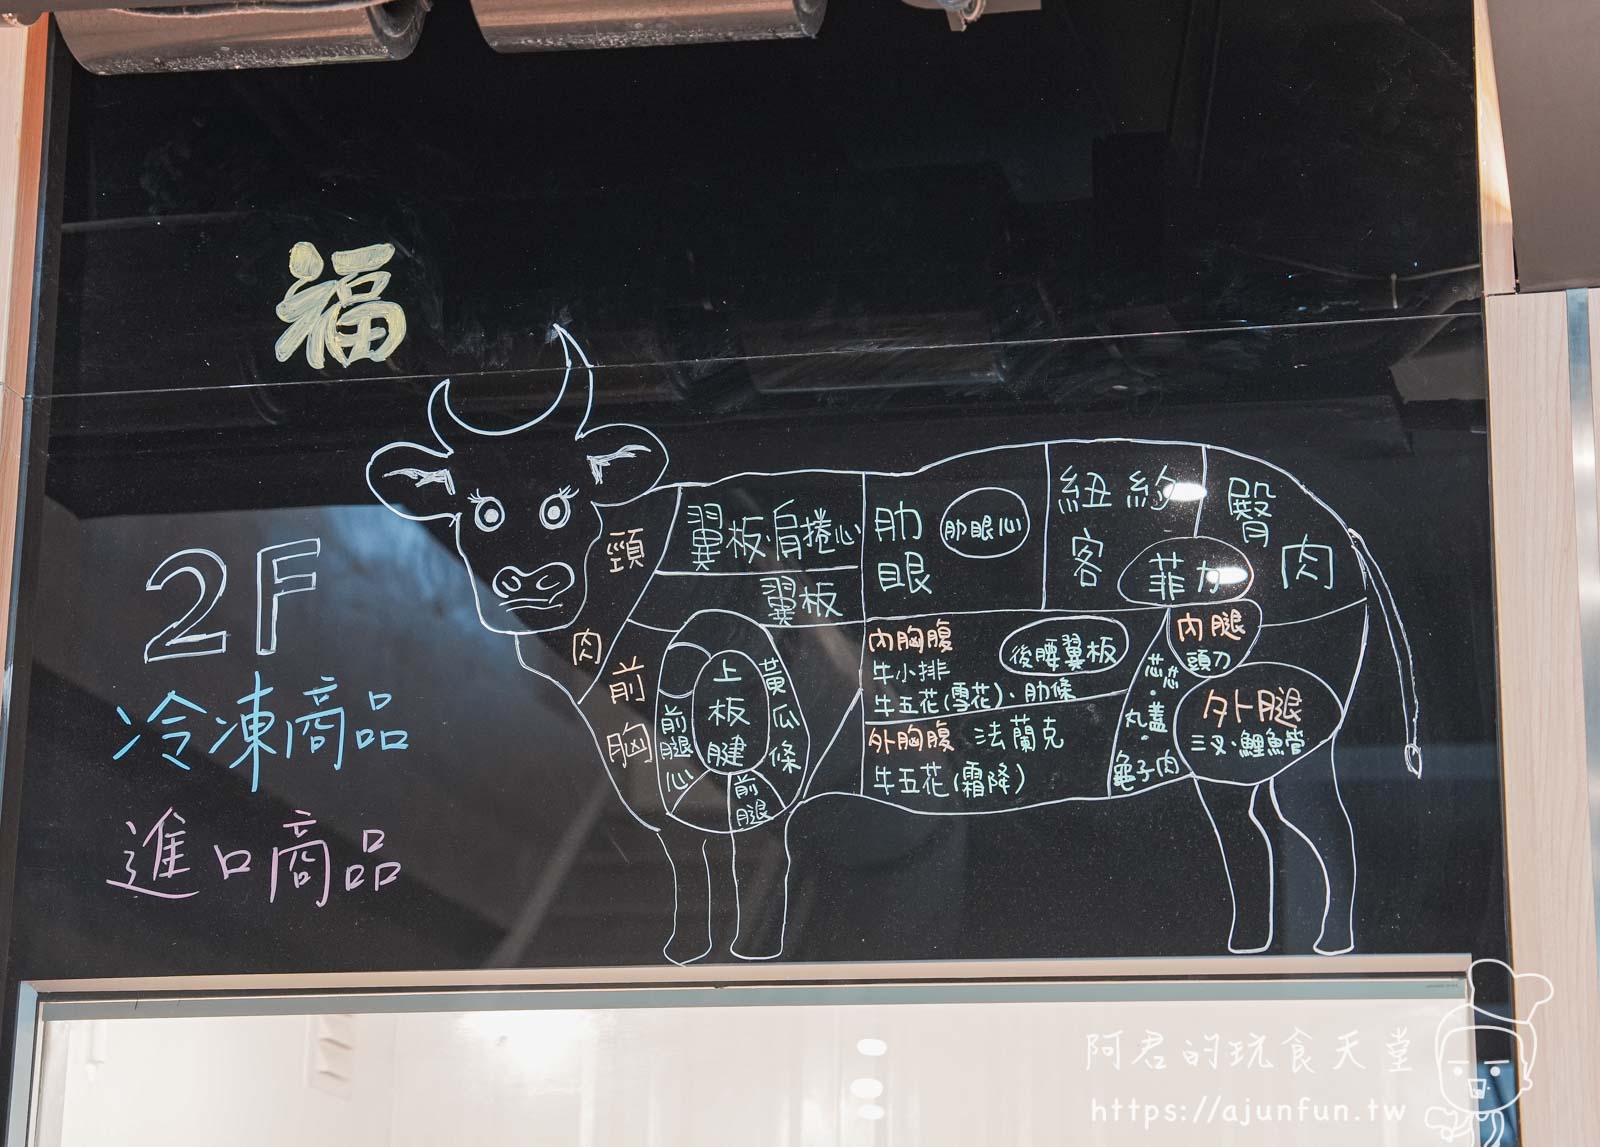 福
2F
冷凍商品
進口商品
頸
肉
翼板·肩捲心
翼板
前
胸
前腿心
上
板
腱
黃瓜條
前腿
肋
眼
肋眼心
紐約
客
菲力
臀
肉
內胸腹
牛小排
牛五花(雪花)·肋條
後腰翼板
外胸腹 法蘭克
牛五花(霜降)
內腿
頭刀
外腿
三叉·鯉魚管
芯芯·丸蓋·龜子肉
阿君的玩食天堂
https://ajunfun.tw